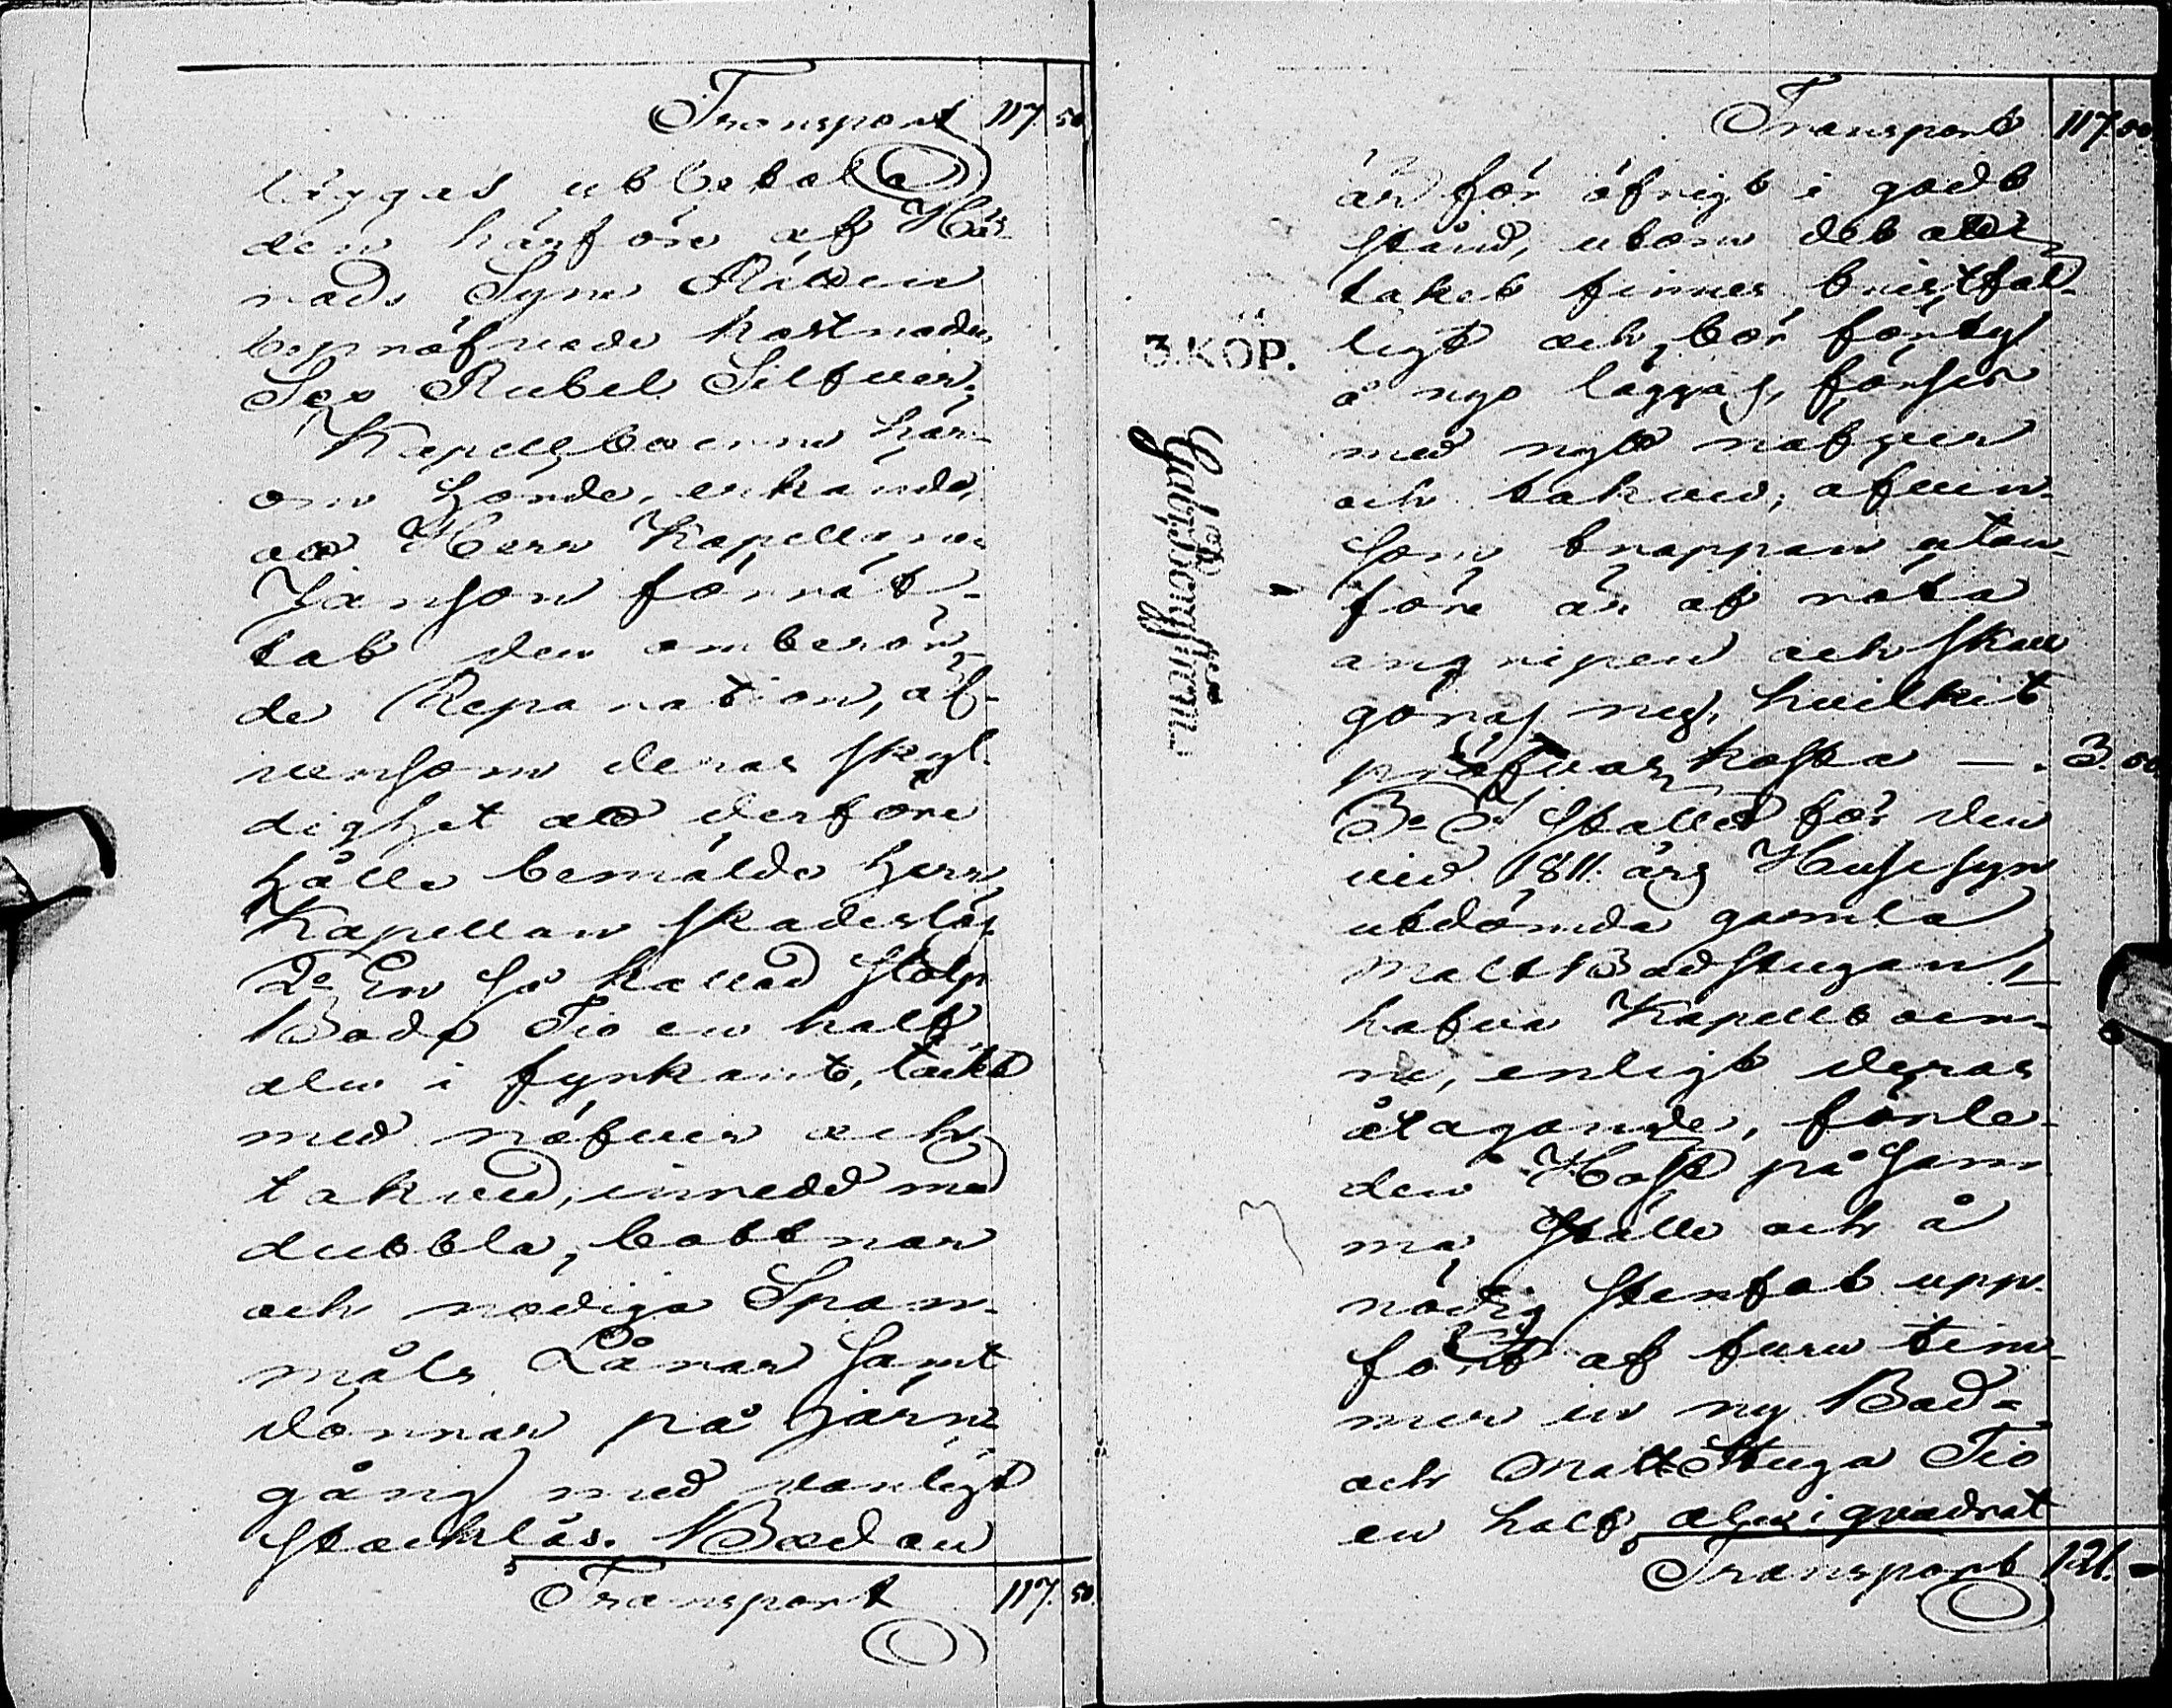 Transport 117. 50
läggas utbetala
den härföre af Hä-
rads Syne Rätten
bepröfvade kostnaden
Sex Rubel Silfver.
Kapellboerne här-
om hörde, erkände,
att Herr Kapellanen
Janson förrät-
tat den omberör-
de Reparation, äf-
vensom deras skyl-
dighet att derföre
hålla bemälde Herr
Kapellan skadeslös.
2o En så kallad Stolp
Bod, Tio en half
aln i fyrkant, täckt
med näfver och
takved, inredd med
dubbla bottnar
och nödiga Span-
måls Lårar samt
dörrar på järn
gång med vanligt
stocklås. Boden
Transport 117. 50.
Transport 117. 50
är för öfrigt i godt
stånd, utom det att
taket finnes bristfäl-
3. KOP.
ligt och bör förty
å nyo läggas, förses
med nytt näfver
och takved; äfven-
som trappan utan-
före är af röta
angripen och skall
göras ny, hvilket
pröfvas kosta — . 3. 50
3o I stället för den
vid 1811 års Husesyn
utdömda gamla
Malt Badstugan,
hafva Kapellboer-
ne, enligt deras
åtagande, förle-
den Höst på sam-
ma ställe och å
nödig stenfot upp-
fört af furu tim-
mer en ny Bad-
och Malt Stuga Tio
en half aln i qvadrat
Transport 121. -